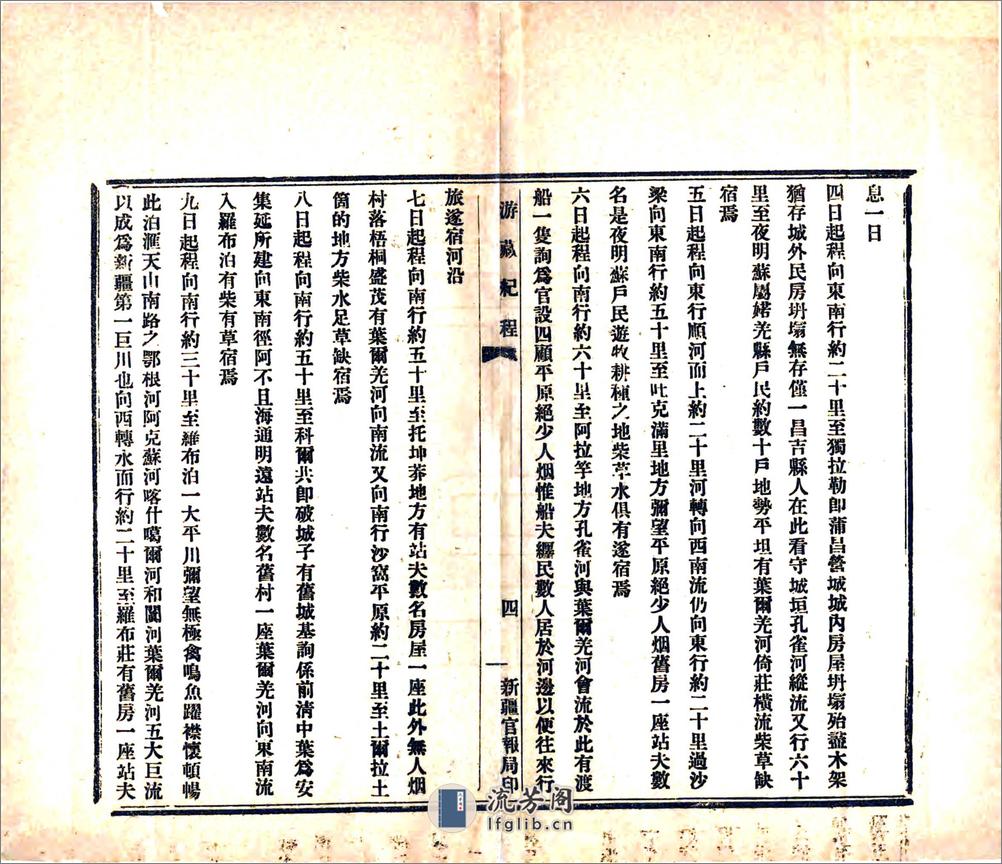 息一日
四日起程向東南行約二十里至獨拉勒即蒲昌營城城內房屋坍塌殆盡木架
猶存城外民房坍塌無存僅一昌吉縣人在此看守城垣孔雀河縱流又行六十
里至夜明蘇屬婼羌縣戶民約數十戶地勢平坦有葉爾羌河倚莊橫流柴草缺
宿焉
五日起程向東行順河而上約二十里河轉向西南流仍向東行約二十里過沙
梁向東南行約五十里至吐克滿里地方彌望平原絕少人烟舊房一座站夫數
名是夜明蘇戶民遊牧耕種之地柴草水俱有遂宿焉
六日起程向南行約六十里至阿拉竿地方孔雀河與葉爾羌河會流於此有渡
船一隻詢為官設四顧平原絕少人烟惟船夫纏民數人居於河邊以便往來行
游藏紀程
四
新疆官報局印
旅遂宿河沿
七日起程向南行約五十里至托坤莽地方有站夫數名房屋一座此外無人烟
村落梧桐盛茂有葉爾羌河向南流又向南行沙窩平原約二十里至土爾拉土
箇的地方柴水足草缺宿焉
八日起程向南行約五十里至科爾共即破城子有舊城基詢係前清中葉為安
集延所建向東南徑阿不且海通明遠站夫數名舊村一座葉爾羌河向東南流
入羅布泊有柴有草宿焉
九日起程向南行約三十里至羅布泊一大平川彌望無極禽鳴魚躍襟懷頓暢
此泊滙天山南路之鄂根河阿克蘇河喀什噶爾河和闐河葉爾羌河五大巨流
以成為新疆第一巨川也向西轉水而行約二十里至羅布莊有舊房一座站夫
流芳閣
lfglib.cn